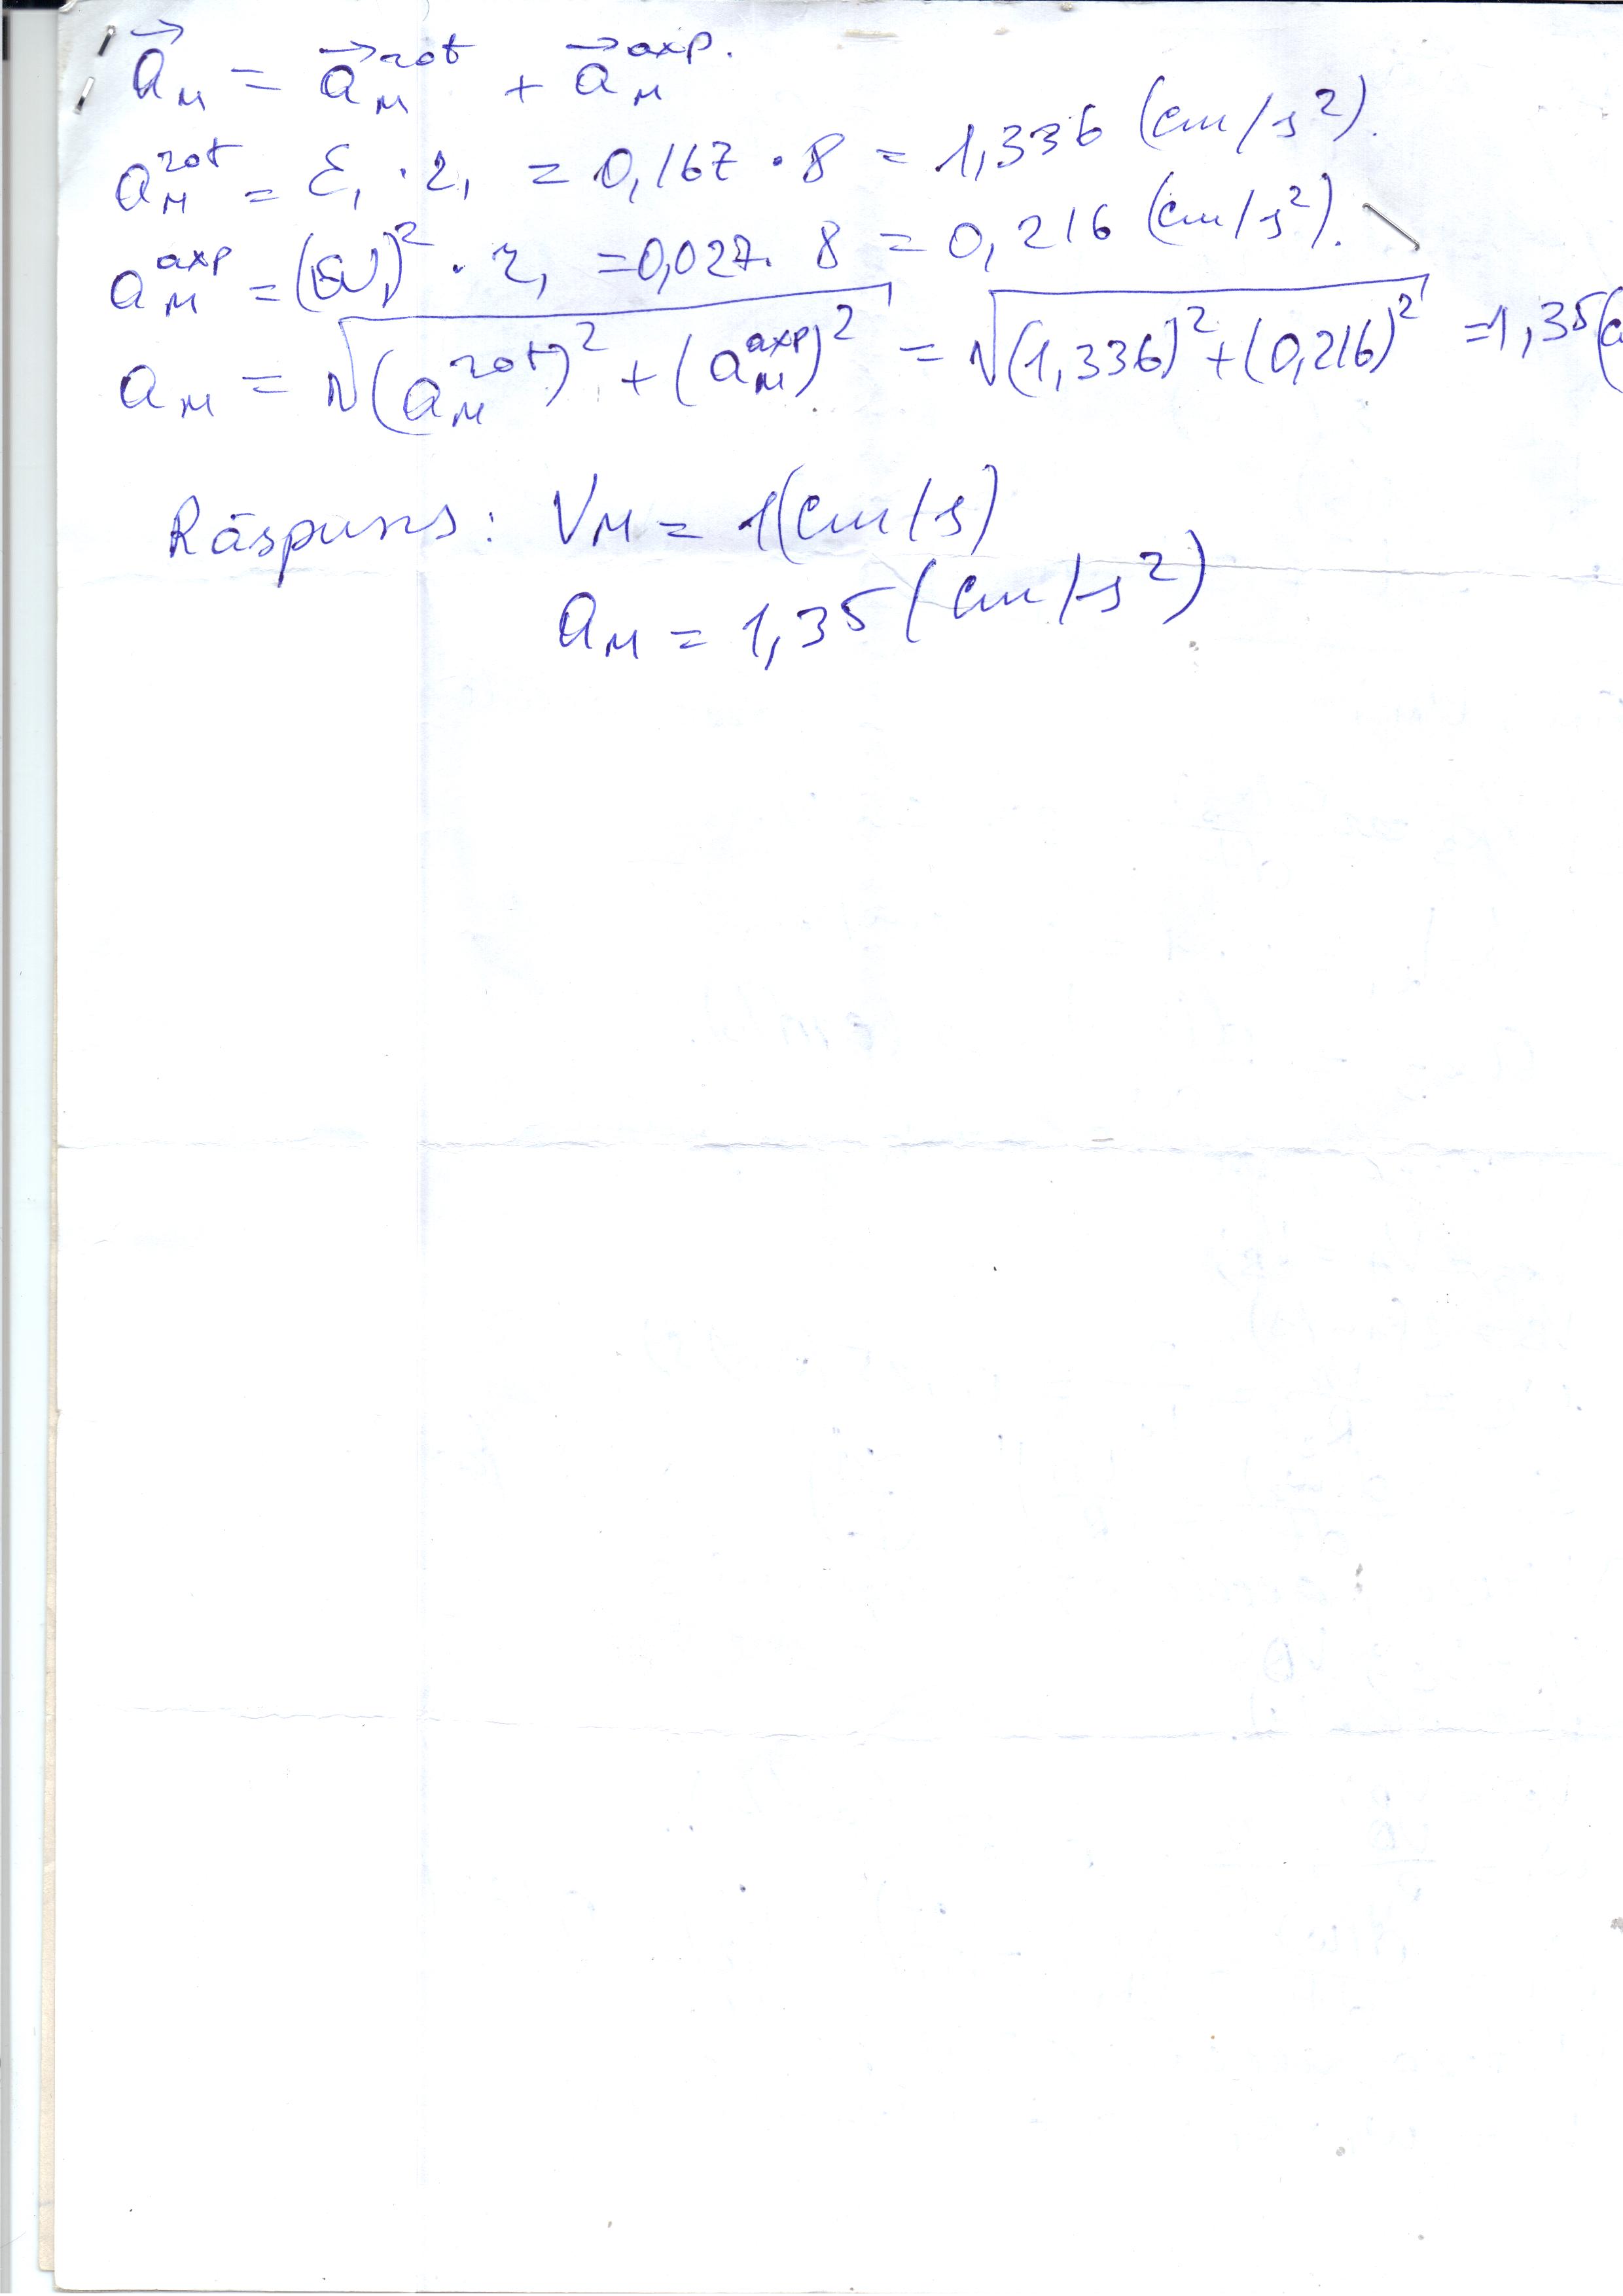 a⃗ₘ = a⃗ₘʳᵒᵗ + a⃗ₘᵃˣᵖ.
aₘʳᵒᵗ = ε₁ · r₁ = 0,167 · 8 = 1,336 (cm/s²).
aₘᵃˣᵖ = (ω₁)² · r₁ = 0,027 · 8 = 0,216 (cm/s²).
aₘ = √((aₘʳᵒᵗ)² + (aₘᵃˣᵖ)²) = √((1,336)² + (0,216)²) = 1,35 (c
Răspuns: Vₘ = 1 (cm/s)
aₘ = 1,35 (cm/s²)